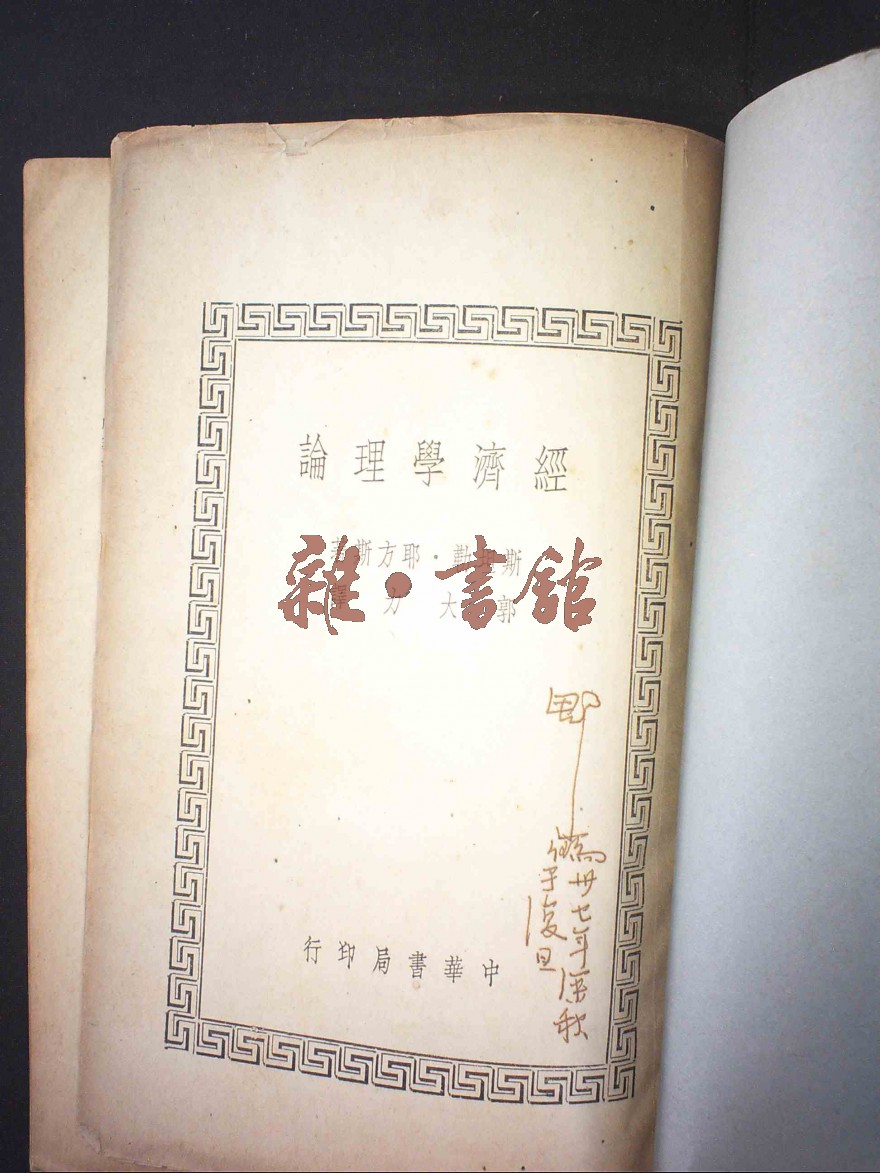 經濟學理論
耶方斯著
郭大力譯
雜·書館
卅七年秋
于復旦
中華書局印行